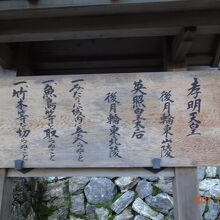 孝明天皇
後月輪東山陵
英照皇太后
後月輪東北陵
一みだりに域内に立入らぬこと
一魚鳥等を取らぬこと
一竹木等を切らぬこと